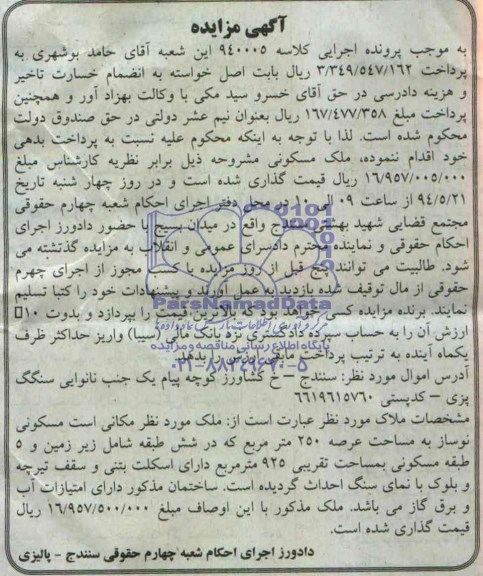 آگهی مزایده
به موجب پرونده اجرایی کلاسه ۹۴۰۰۰۵ این شعبه آقای حامد بوشهری به
پرداخت ۳/۳۴۹/۵۴۷/۱۶۲ ریال بابت اصل خواسته به انضمام خسارت تاخیر
و هزینه دادرسی در حق آقای خسرو سید مکی با وکالت بهزاد آور و همچنین
پرداخت مبلغ ۱۶۷/۴۷۷/۳۵۸ ریال بعنوان نیم عشر دولتی در حق صندوق دولت
محکوم شده است. لذا با توجه به اینکه محکوم علیه نسبت به پرداخت بدهی
خود اقدام ننموده، ملک مسکونی مشروحه ذیل برابر نظریه کارشناس مبلغ
۱۶/۹۵۷/۰۰۵/۰۰۰ ریال قیمت گذاری شده است و در روز چهار شنبه تاریخ
۹۴/۵/۲۱ از ساعت ۰۹ الی ۱۰ در محل دفتر اجرای احکام شعبه چهارم حقوقی
مجتمع قضایی شهید بهشتی سنندج واقع در میدان بسیج با حضور دادورز اجرای
احکام حقوقی و نماینده محترم دادسرای عمومی و انقلاب به مزایده گذشته می
شود. طالبیت می توانند پنج قبل از روز مزایده با کسب مجوز از اجرای چهرم
حقوقی از مال توقیف شده بازدید به عمل آورند و پیشنهادات خود را کتبا تسلیم
نمایند. برنده مزایده کسی خواهد بود که بالاترین قیمت را بپردازد و بدوت ۱۰٪
ارزش آن را به حساب سپرده دادگستری نزد بانک ملی (سیبا) واریز حداکثر ظرف
یکماه آینده به ترتیب پرداخت مابقی ارزش را بدهد.
آدرس اموال مورد نظر: سنندج – خ کشاورز کوچه پیام یک جنب نانوایی سنگگ
پزی – کدپستی ۶۶۱۹۶۱۵۷۶۰
مشخصات ملاک مورد نظر عبارت است از: ملک مورد نظر مکانی است مسکونی
نوساز به مساحت عرصه ۲۵۰ متر مربع که در شش طبقه شامل زیر زمین و ۵
طبقه مسکونی بمساحت تقریبی ۹۲۵ مترمربع دارای اسکلت بتنی و سقف تیرچه
و بلوک با نمای سنگ احداث گردیده است. ساختمان مذکور دارای امتیازات آب
و برق گاز می باشد. ملک مذکور با این اوصاف مبلغ ۱۶/۹۵۷/۵۰۰/۰۰۰ ریال
قیمت گذاری شده است.
دادورز اجرای احکام شعبه چهارم حقوقی سنندج – پالیزی
ParsNamadData
پایگاه اطلاع رسانی مناقصه و مزایده
۰۲۱-۸۸۳۴۹۶۷۰-۵